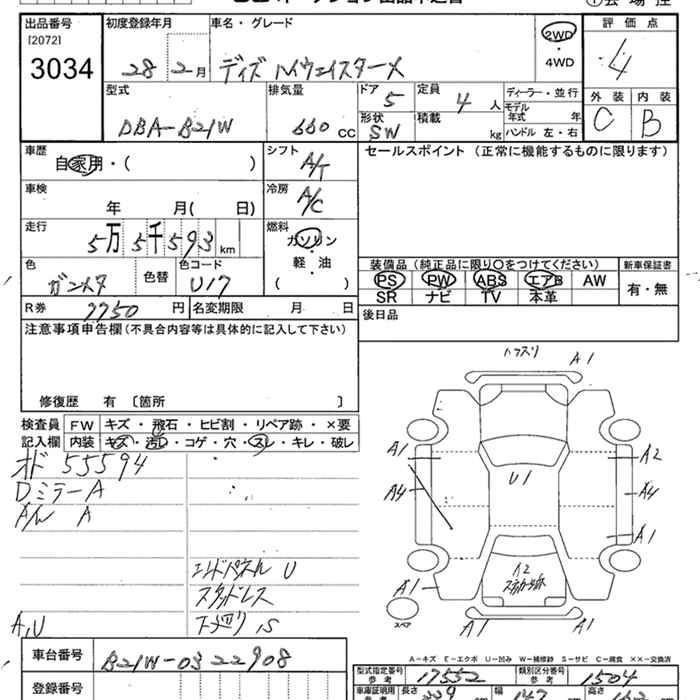 出品番号 初度登録年月 車名・グレード 2WD ・ 4WD 評価点
[2072]
3034 28年 2月 デイズ ハイウェイスターX 4
型式 排気量 ドア 5 定員 4人 ディーラー・並行 外装 内装
DBA-B21W 660 CC 形状 SW 積載 kg モデル年式 年 C B
ハンドル 左・右
車歴 自家用・( ) シフト A/T セールスポイント (正常に機能するものに限ります)
車検 年 月( 日) 冷房 A/C
走行 5万5千593km 燃料 ガソリン 軽・油 ( )
色 ガンメタ 色替 色コード U17
装備品 (純正品に限り○をつけてください) 新車保証書
PS PW ABS エアB AW 有・無
SR ナビ TV 本革
R券 7750円 名変期限 月 日 後日品
注意事項申告欄 (不具合内容等は具体的に記入して下さい)
修復歴 有 〔箇所 〕
検査員 FW キズ・飛石・ヒビ割・リペア跡・×要
記入欄 内装 キズ・汚レ・コゲ・穴・スレ・キレ・破レ
オド 55594
Dミラー A
A/W A
エンドパネル U
スタッドレス
A,U 下廻り S
A1
A1 A2
U1
A4 A4
A1
A2
A1
スペア
A1 A1
A-キズ E-エクボ U-凹み W-補修跡 S-サビ C-腐食 ××-交換済
車台番号 B21W-0322908
登録番号
型式指定番号 参考 17552 類別区分番号 参考 1504
車庫証明用 参考 長さ 339 幅 147 高さ